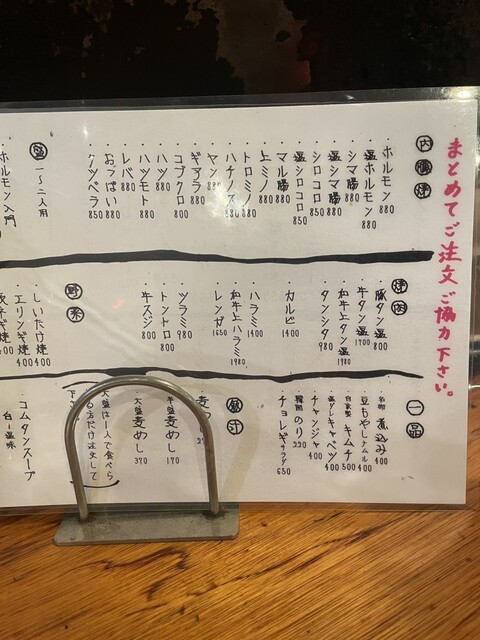 まとめてご注文ご協力下さい。
内臓焼
・ホルモン 880
・塩ホルモン 880
・シマ腸 880
・塩シマ腸 880
・シロコロ 850
・塩シロコロ 850
・マル腸 880
・上ミノ 880
・トロミノ 880
・ハチノス 880
・ヤン 880
・ギアラ 880
・コブクロ 800
・ハツ 880
・ハツモト 880
・レバ 880
・おっぱい 880
・クツベラ 850
盛 一〜二人用
ホルモン入門
焼肉
・豚タン塩 800
・牛タン塩 1700
・和牛上タン塩 1980
・タンシタ 980
・カルビ 1400
・ハラミ 1400
・和牛上ハラミ 1980
・レンガ 1650
・ツラミ 980
・トントロ 800
・牛スジ 800
野菜
しいたけ焼 400
エリンギ焼 400
ネギ焼 400
一品
名物 煮込み 400
豆もやしナムル 400
自家製 キムチ 500
塩ダレキャベツ 400
チャンジャ 400
韓国のり 220
チョレギサラダ 650
飯汁
麦め
半盛 麦めし 170
大盛 麦めし 370
大盛は1人で食べら
る方だけ注文して
下
コムタンスープ
白=塩味